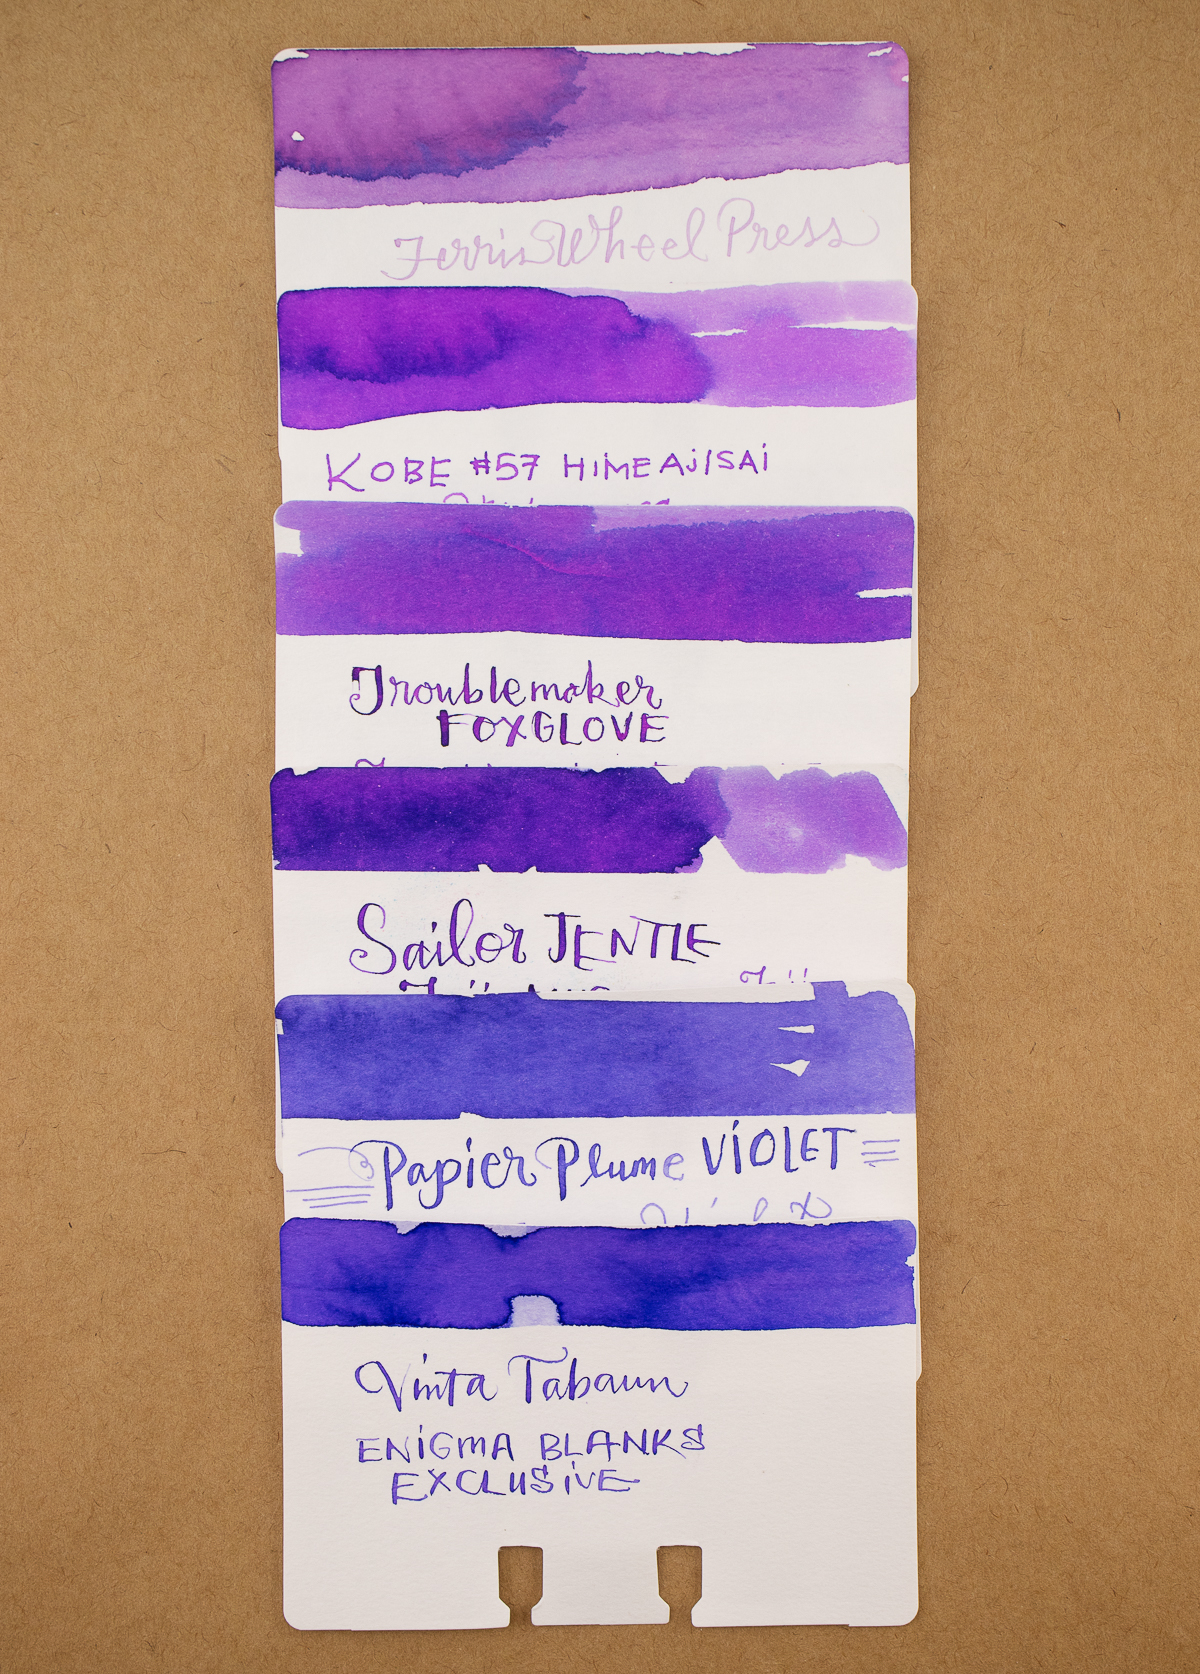 Ferris Wheel Press
KOBE #57 HIMEAJISAI
Troublemaker
FOXGLOVE
Sailor JENTLE
Papier Plume ViOLET
Vinta Tabaun
ENiGMA BLANKS
EXCLUSiVE